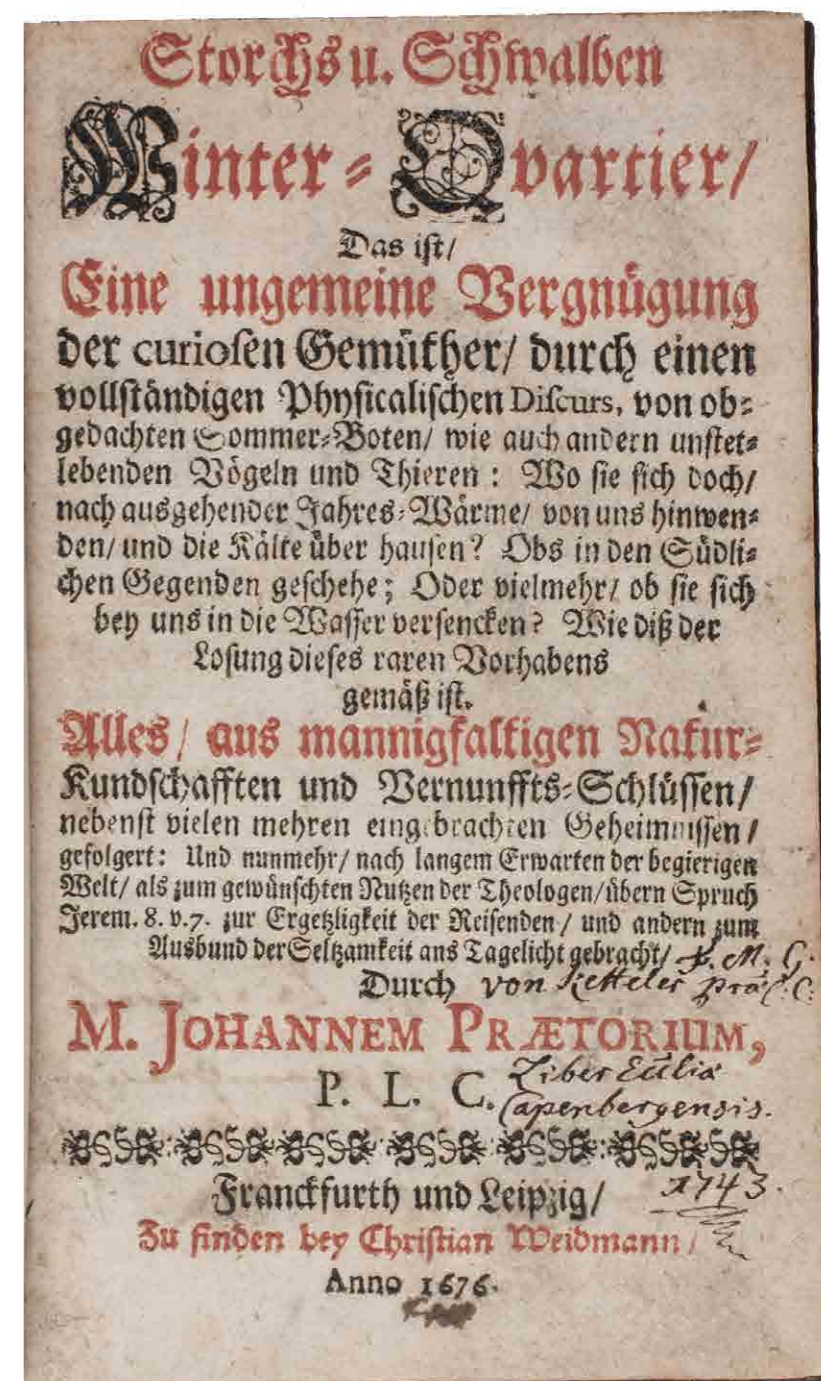 Storchs u. Schwalben
Winter-Qvartier/
Das ist/
Eine ungemeine Vergnügung
der curiosen Gemüther/ durch einen
vollständigen Physicalischen Discurs, von ob-
gedachten Sommer-Boten/ wie auch andern unstet-
lebenden Vögeln und Thieren: Wo sie sich doch/
nach ausgehender Jahres-Wärme/ von uns hinwen-
den/ und die Kälte über hausen? Obs in den Südli-
chen Gegenden geschehe; Oder vielmehr/ ob sie sich
bey uns in die Wasser versencken? Wie diß der
Losung dieses raren Vorhabens
gemäß ist.
Alles/ aus mannigfaltigen Natur-
Kundschafften und Vernunffts-Schlüssen/
nebenst vielen mehren eingebrachten Geheimnissen/
gefolgert: Und nunmehr/ nach langem Erwarten der begierigen
Welt/ als zum gewünschten Nutzen der Theologen/ übern Spruch
Jerem. 8. v. 7. zur Ergetzligkeit der Reisenden/ und andern zum
Ausbund der Seltzamkeit ans Tagelicht gebracht/ M. G.
Durch von Ketteler
M. JOHANNEM PRÆTORIUM,
P. L. C. Liber
Capenbergensis.
Franckfurth und Leipzig/ 1743.
Zu finden bey Christian Weidmann/
Anno 1676.